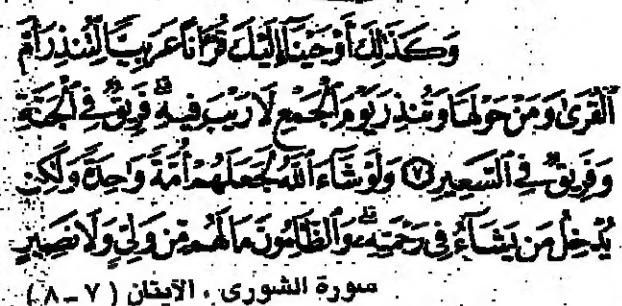 وَكَذَٰلِكَ أَوْحَيْنَآ إِلَيْكَ قُرْءَانًا عَرَبِيًّا لِّتُنذِرَ أُمَّ
ٱلْقُرَىٰ وَمَنْ حَوْلَهَا وَتُنذِرَ يَوْمَ ٱلْجَمْعِ لَا رَيْبَ فِيهِ ۚ فَرِيقٌ فِى ٱلْجَنَّةِ
وَفَرِيقٌ فِى ٱلسَّعِيرِ ۝٧ وَلَوْ شَآءَ ٱللَّهُ لَجَعَلَهُمْ أُمَّةً وَٰحِدَةً وَلَٰكِن
يُدْخِلُ مَن يَشَآءُ فِى رَحْمَتِهِ ۚ وَٱلظَّٰلِمُونَ مَا لَهُم مِّن وَلِىٍّ وَلَا نَصِيرٍ
سورة الشورى ، الآيتان ( ٧ – ٨ )